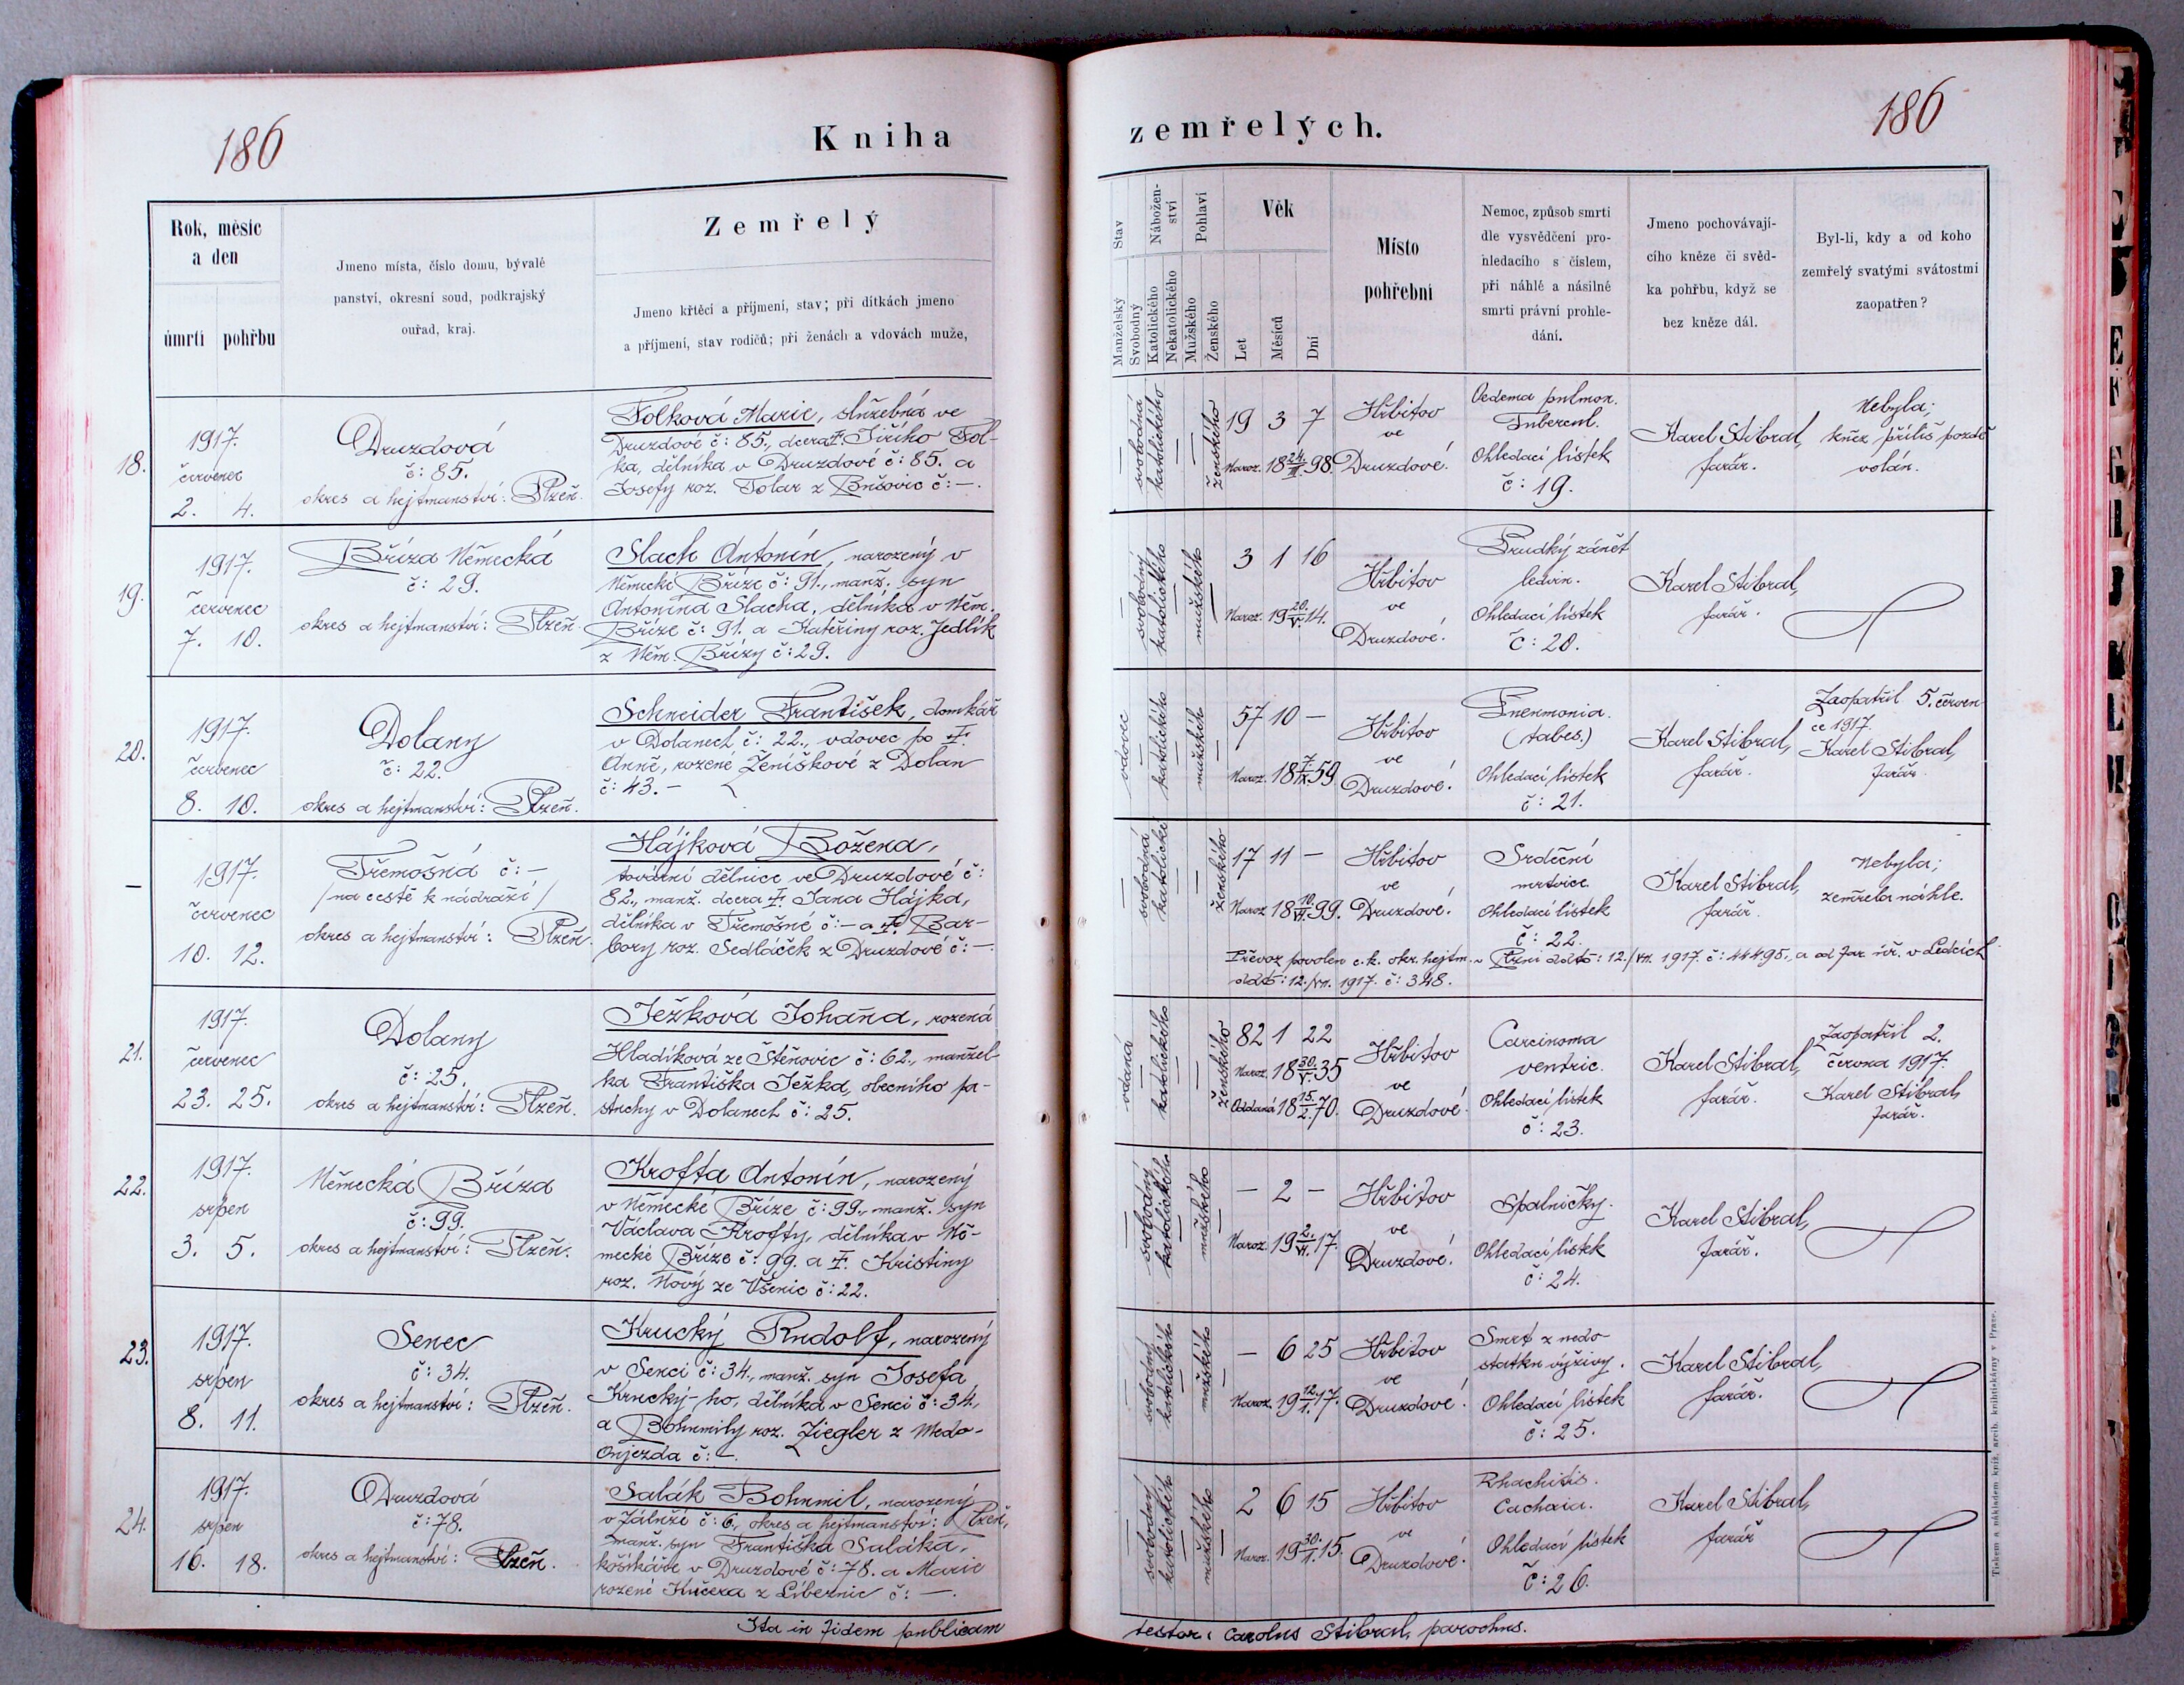 186
Kniha
zemřelých.
186
Rok, měsíc
a den
úmrtí pohřbu
Jmeno místa, číslo domu, bývalé
panství, okresní soud, podkrajský
ouřad, kraj.
Zemřelý
Jmeno křtěcí a příjmení, stav; při dítkách jmeno
a příjmení, stav rodičů; při ženách a vdovách muže,
Stav
Manželský
Svobodný
Nábožen-
ství
Katolického
Nekatolického
Pohlaví
Mužského
Ženského
Věk
Let
Měsíců
Dní
Místo
pohřební
Nemoc, způsob smrti
dle vysvědčení pro-
hledacího s číslem,
při náhlé a násilné
smrti právní prohle-
dání.
Jmeno pochovávají-
cího kněze či svěd-
ka pohřbu, když se
bez kněze dál.
Byl-li, kdy a od koho
zemřelý svatými svátostmi
zaopatřen?
18.
1917.
červenec
2. 4.
Druzdová
č: 85.
okres a hejtmanství: Plzeň.
Folková Marie, služebná ve
Druzdové č: 85., dcera † Jiřího Fol-
ka, dělníka v Druzdové č: 85. a
Josefy roz. Tolar z č: —.
svobodná
katolického
ženského
19 3 7
Naroz. 18 24./III. 98.
Hřbitov
ve
Druzdové.
Oedema pulmon.
Tubercul.
Ohledací lístek
č: 19.
Karel Stibral,
farář.
Nebyla;
kněz příliš pozdě
volán.
19.
1917.
červenec
7. 10.
Bříza Německá
č: 29.
okres a hejtmanství: Plzeň.
Slach Antonín, narozený v
Německé Bříze č: 91., manž. syn
Antonína Slacha, dělníka v Něm.
Bříze č: 91. a Kateřiny roz. Jedlík
z Něm. Břízy č: 29.
svobodný
katolického
mužského
3 1 16
Naroz. 19 20./V. 14.
Hřbitov
ve
Druzdové.
Prudký zánět
ledvin.
Ohledací lístek
č: 20.
Karel Stibral,
farář.
20.
1917.
červenec
8. 10.
Dolany
č: 22.
okres a hejtmanství: Plzeň.
Schneider František, domkář
v Dolanech č: 22., vdovec po †
Anně, rozené Ženíškové z Dolan
č: 43. —
vdovec
katolického
mužského
57 10 —
Naroz. 18 7./IX. 59.
Hřbitov
ve
Druzdové.
Pneumonia.
(tabes.)
Ohledací lístek
č: 21.
Karel Stibral,
farář.
Zaopatřil 5. červen-
ce 1917.
Karel Stibral,
farář.
—
1917.
červenec
10. 12.
Třemošná č: —
/na cestě k nádraží/
okres a hejtmanství: Plzeň.
Hájková Božena,
tovární dělnice ve Druzdové č:
82., manž. dcera † Jana Hájka,
dělníka v Třemošné č: — a † Bar-
bory roz. Sedláček z Druzdové č: —.
svobodná
katolické
ženského
17 11 —
Naroz. 18 10./VI. 99.
Hřbitov
ve
Druzdové.
Srdeční
mrtvice.
Ohledací lístek
č: 22.
Karel Stibral,
farář.
Nebyla;
zemřela náhle.
Převoz povolen c. k. okr. hejtm. v Plzni ddto: 12./VII. 1917. č: 44495., a od far. úř. v Ledcích
ddto: 12./VII. 1917. č: 348.
21.
1917.
červenec
23. 25.
Dolany
č: 25.
okres a hejtmanství: Plzeň.
Ježková Johana, rozená
Hladíková ze Štěňovic č: 62., manžel-
ka Františka Ježka, obecního pa-
stuchy v Dolanech č: 25.
vdaná
katolického
ženského
82 1 22
Naroz. 18 30./V. 35
Oddaná 18 15./2. 70.
Hřbitov
ve
Druzdové.
Carcinoma
ventric.
Ohledací lístek
č: 23.
Karel Stibral,
farář.
Zaopatřil 2.
června 1917.
Karel Stibral,
farář.
22.
1917.
srpen
3. 5.
Německá Bříza
č: 99.
okres a hejtmanství: Plzeň.
Krofta Antonín, narozený
v Německé Bříze č: 99., manž. syn
Václava Krofty, dělníka v Ně-
mecké Bříze č: 99. a † Kristiny
roz. Nový ze Všenic č: 22.
svobodný
katolického
mužského
— 2 —
Naroz. 19 2./VI. 17.
Hřbitov
ve
Druzdové.
Spalničky.
Ohledací lístek
č: 24.
Karel Stibral,
farář.
23.
1917.
srpen
8. 11.
Senec
č: 34.
okres a hejtmanství: Plzeň.
Krucký Rudolf, narozený
v Senci č: 34., manž. syn Josefa
Krucký-ho, dělníka v Senci č: 34.,
a Bohumily roz. Ziegler z Medo-
Oujezda č: —.
svobodný
katolického
mužského
— 6 25
Naroz. 19 12./1. 17.
Hřbitov
ve
Druzdové.
Smrt z nedo-
statku výživy.
Ohledací lístek
č: 25.
Karel Stibral,
farář.
24.
1917.
srpen
16. 18.
Druzdová
č: 78.
okres a hejtmanství: Plzeň.
Salák Bohumil, narozený
v Záluží č: 6., okres a hejtmanství: Plzeň,
manž. syn Františka Saláka,
košíkáře v Druzdové č: 78. a Marie
rozené Kučera z Líbeznic č: —.
svobodný
katolického
mužského
2 6 15
Naroz. 19 30./1. 15.
Hřbitov
ve
Druzdové.
Rhachitis.
Cachaia.
Ohledací lístek
č: 26.
Karel Stibral,
farář
Ita in fidem publicam
testor: Carolus Stibral, parochus.
Tiskem a nákladem kníž. arcib. knihtiskárny v Praze.